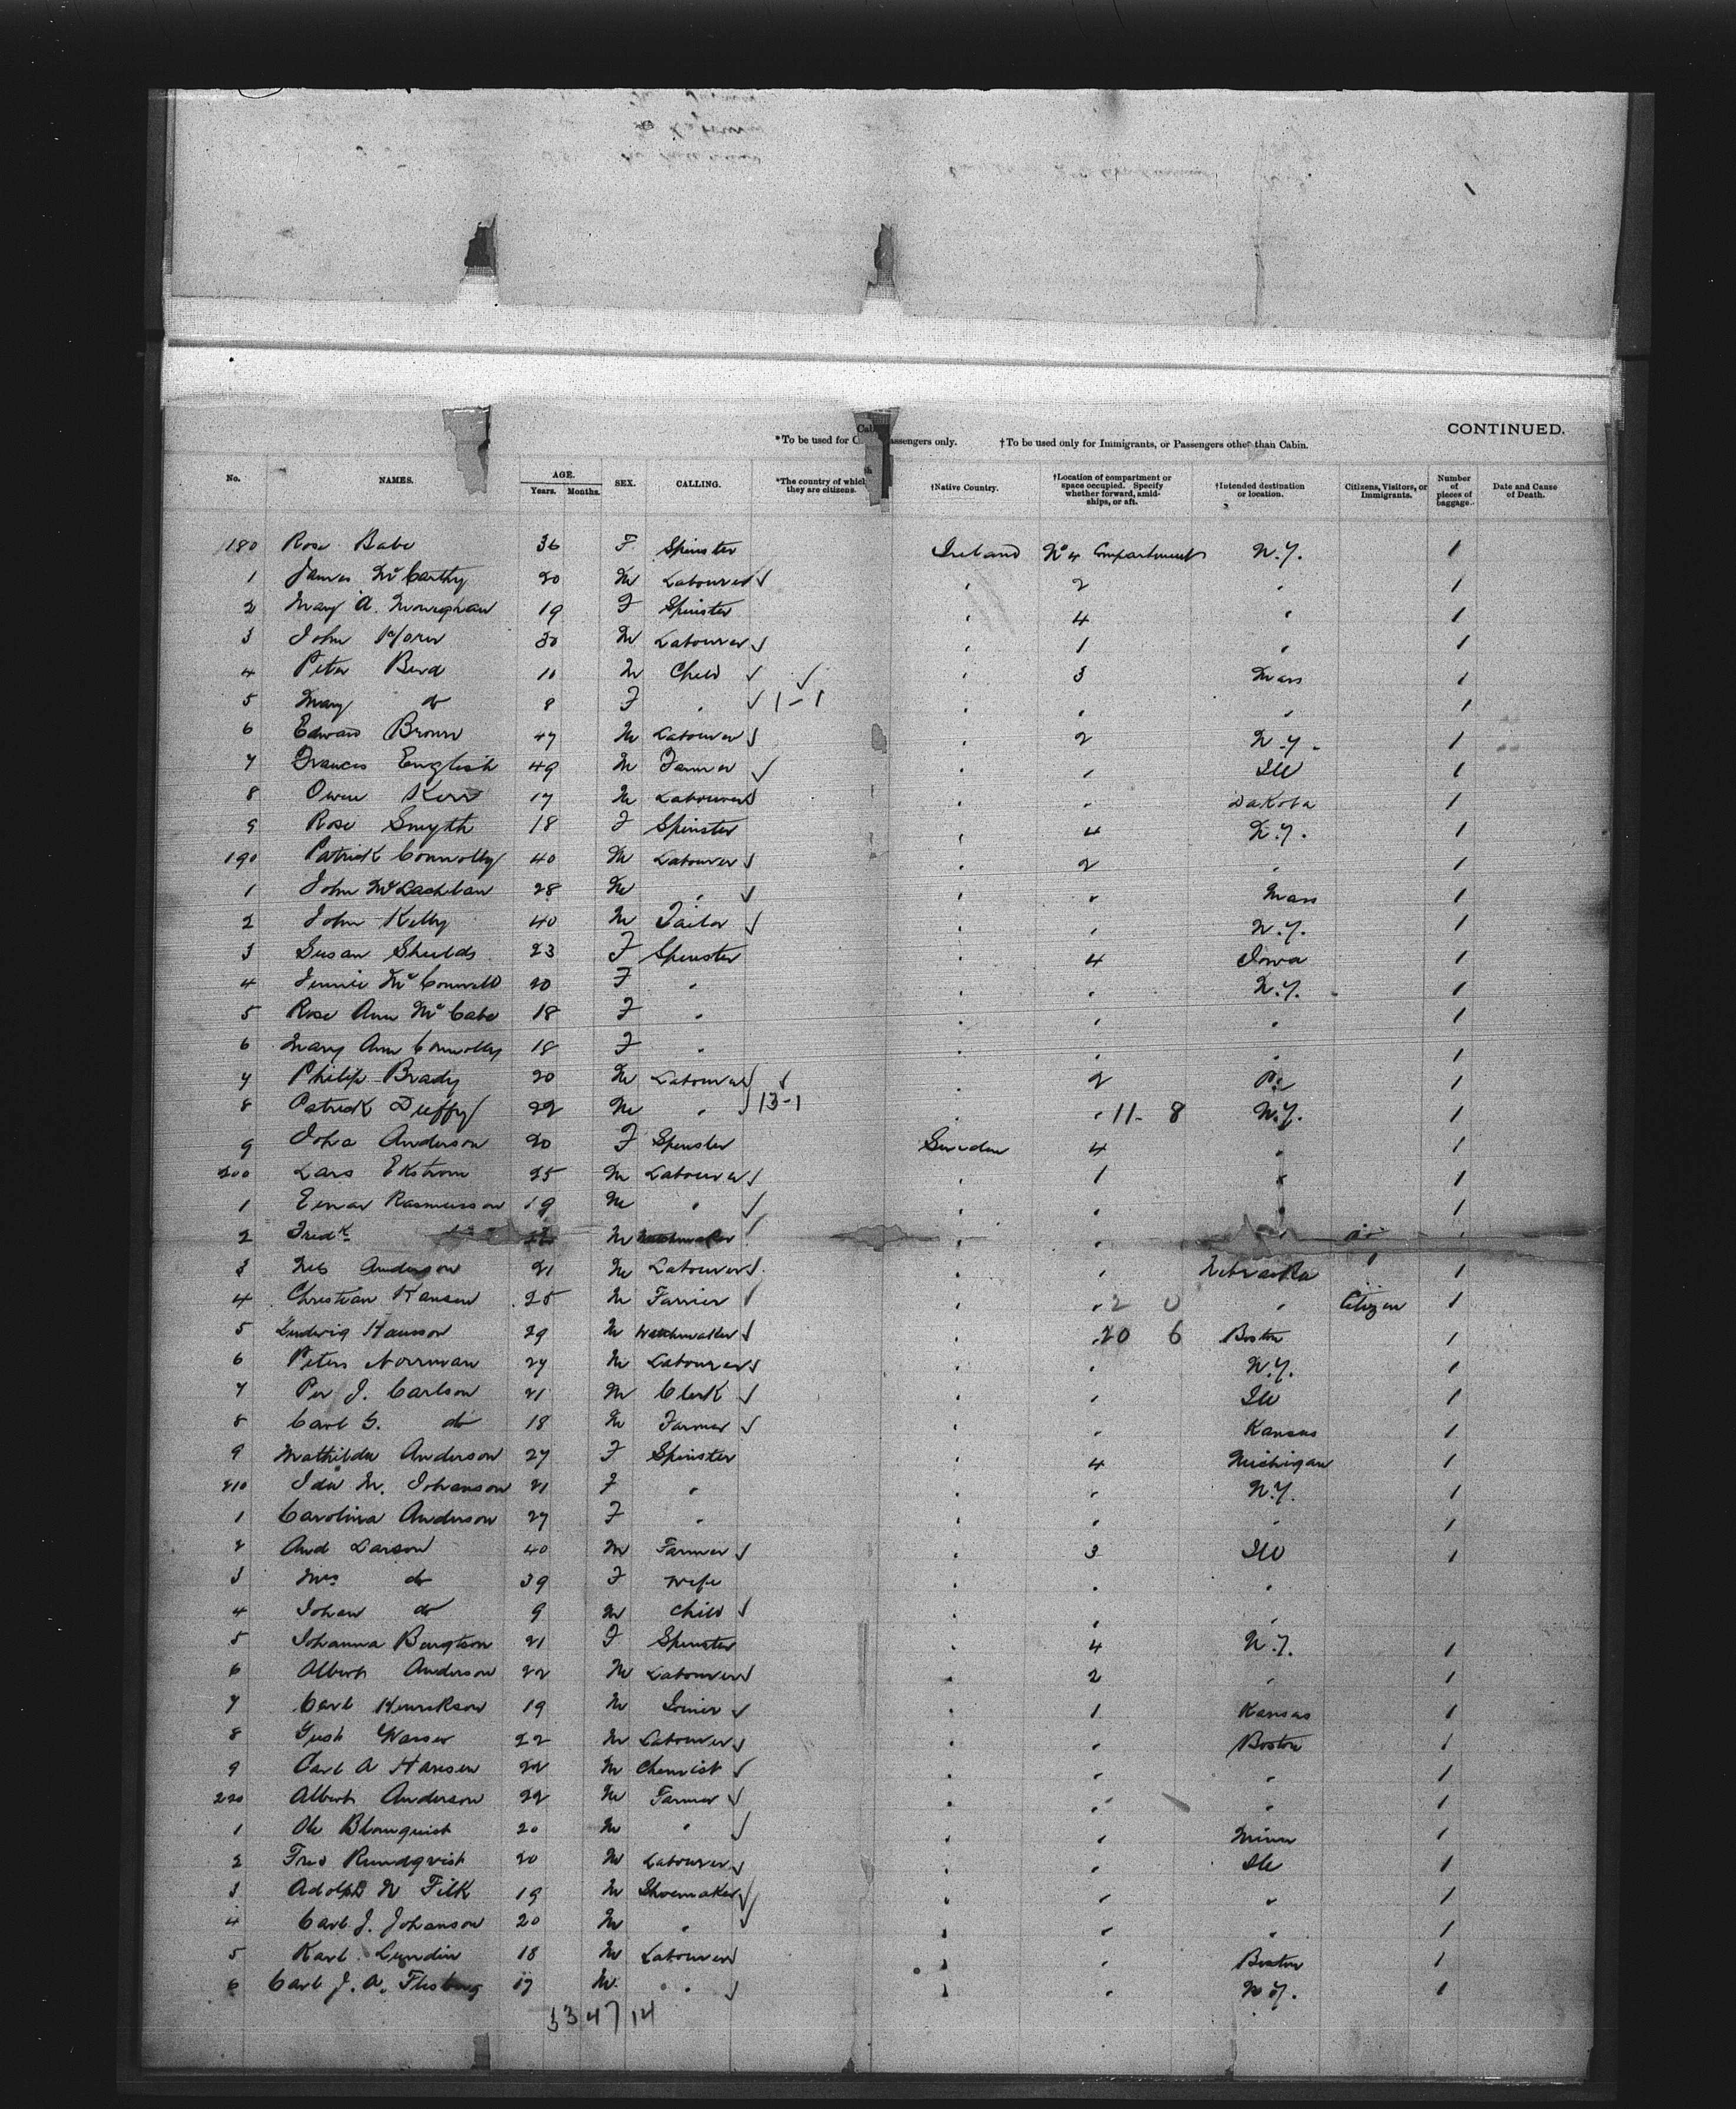 CONTINUED.
*To be used for C assengers only. †To be used only for Immigrants, or Passengers other than Cabin.
No. NAMES. AGE. Years. Months. SEX. CALLING. *The country of which they are citizens. †Native Country. †Location of compartment or space occupied. Specify whether forward, amidships, or aft. †Intended destination or location. Citizens, Visitors, or Immigrants. Number of pieces of baggage. Date and Cause of Death.
180 Rose Babe 36 F Spinster Ireland No 4 Compartment N.Y. 1
1 James McCarthy 20 M Labourer 2 " 1
2 Mary A. 19 F Spinster " 4 " 1
3 John 30 M Labourer " 1 " 1
4 Peter 10 M Child " 3 Mass 1
5 Mary do 8 F " 1-1 " " " 1
6 Edward Brown 47 M Labourer " 2 N.Y. 1
7 Francis English 49 M Farmer " " Ill 1
8 Owen Kerr 17 M Labourer " " Dakota 1
9 Rose Smyth 18 F Spinster " 4 N.Y. 1
190 Patrick Connolly 40 M Labourer " 2 " 1
1 John McLachlan 28 M " " " Mass 1
2 John Kelly 40 M Tailor " " N.Y. 1
3 Susan Shields 23 F Spinster " 4 Iowa 1
4 Jennie McConnell 20 F " " " N.Y. 1
5 Rose Ann McCabe 18 F " " " " 1
6 Mary Ann Connolly 18 F " " " " 1
7 Philip Brady 20 M Labourer " 2 1
8 Patrick Duffy 22 M " 13-1 " " 11- 8 N.Y. 1
9 Anderson 20 F Spinster Sweden 4 " 1
200 Lars Ekstrom 25 M Labourer " 1 " 1
1 Einar Rasmusson 19 M " " " " 1
2 Fredk M Watchmaker " " "
3 Anderson 21 M Labourer " " Nebraska 1
4 Christian Hansen 25 M Farrier " " 2 0 " Citizen 1
5 Ludwig Hansson 29 M Watchmaker 20 6 Boston 1
6 Peters Norrman 27 M Labourer " " N.Y. 1
7 Per J. Carlson 21 M Clerk " " Ill 1
8 Carl G. do 18 M Farmer " " Kansas 1
9 Mathilda Anderson 27 F Spinster " 4 Michigan 1
210 Ida M. Johanson 21 F " " " N.Y. 1
1 Carolina Anderson 27 F " " " " 1
2 And Larson 40 M Farmer " 3 Ill 1
3 Mrs do 39 F Wife " " "
4 Johan do 9 M Child " " "
5 Johanna Bengtson 21 F Spinster " 4 N.Y. 1
6 Albert Anderson 22 M Labourer " 2 " 1
7 Carl Henrikson 19 M Joiner " 1 Kansas 1
8 22 M Labourer " " Boston 1
9 Carl A Hansen 22 M Chemist " " " 1
220 Albert Anderson 22 M Farmer " " " 1
1 Ole Blomquist 20 M " " " Minn 1
2 Fred Rundqvist 20 M Labourer " " Ill 1
3 Adolph N Filk 19 M Shoemaker " " " 1
4 Carl J. Johanson 20 M " " " " 1
5 Karl Lundin 18 M Labourer " " Boston 1
6 Carl J. A. 17 M " " " N.Y. 1
33 47 14